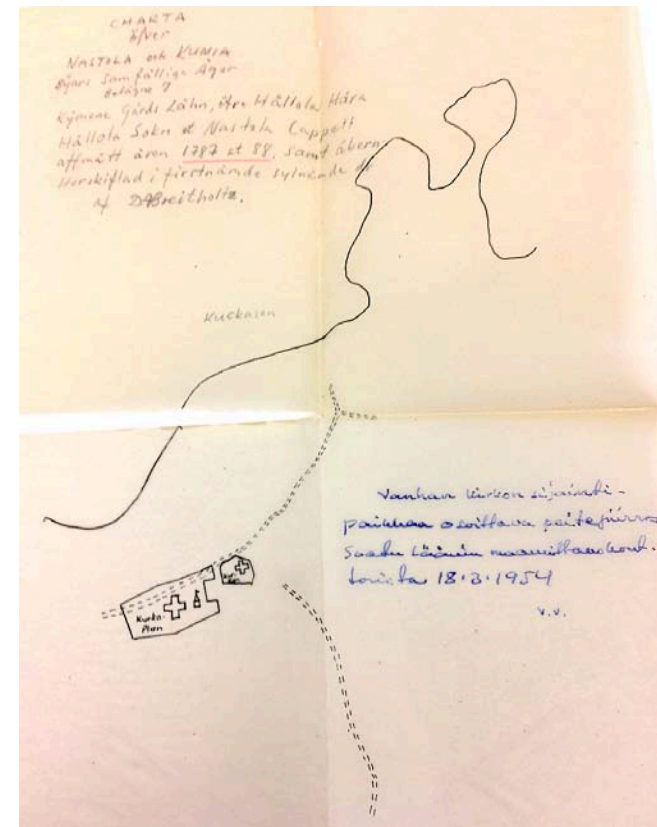 CHARTA
öfver
NASTOLA och KUMIA
Byars Samfällige Ägor
Belägne i
Kymene Gårds Lähn, öfre Hållola Hära
Hållola Sokn et Nastola Cappell
affmätt åren 1787 et 88, samt
i firstnämde
af Breitholtz.
Kuckasen
Vanhan kirkon sijainti-
paikkaa osoittava peitepiirros
Saatu läänin maanmittauskont-
torista 18.3.1954
v.v.
Kurko-
Plan